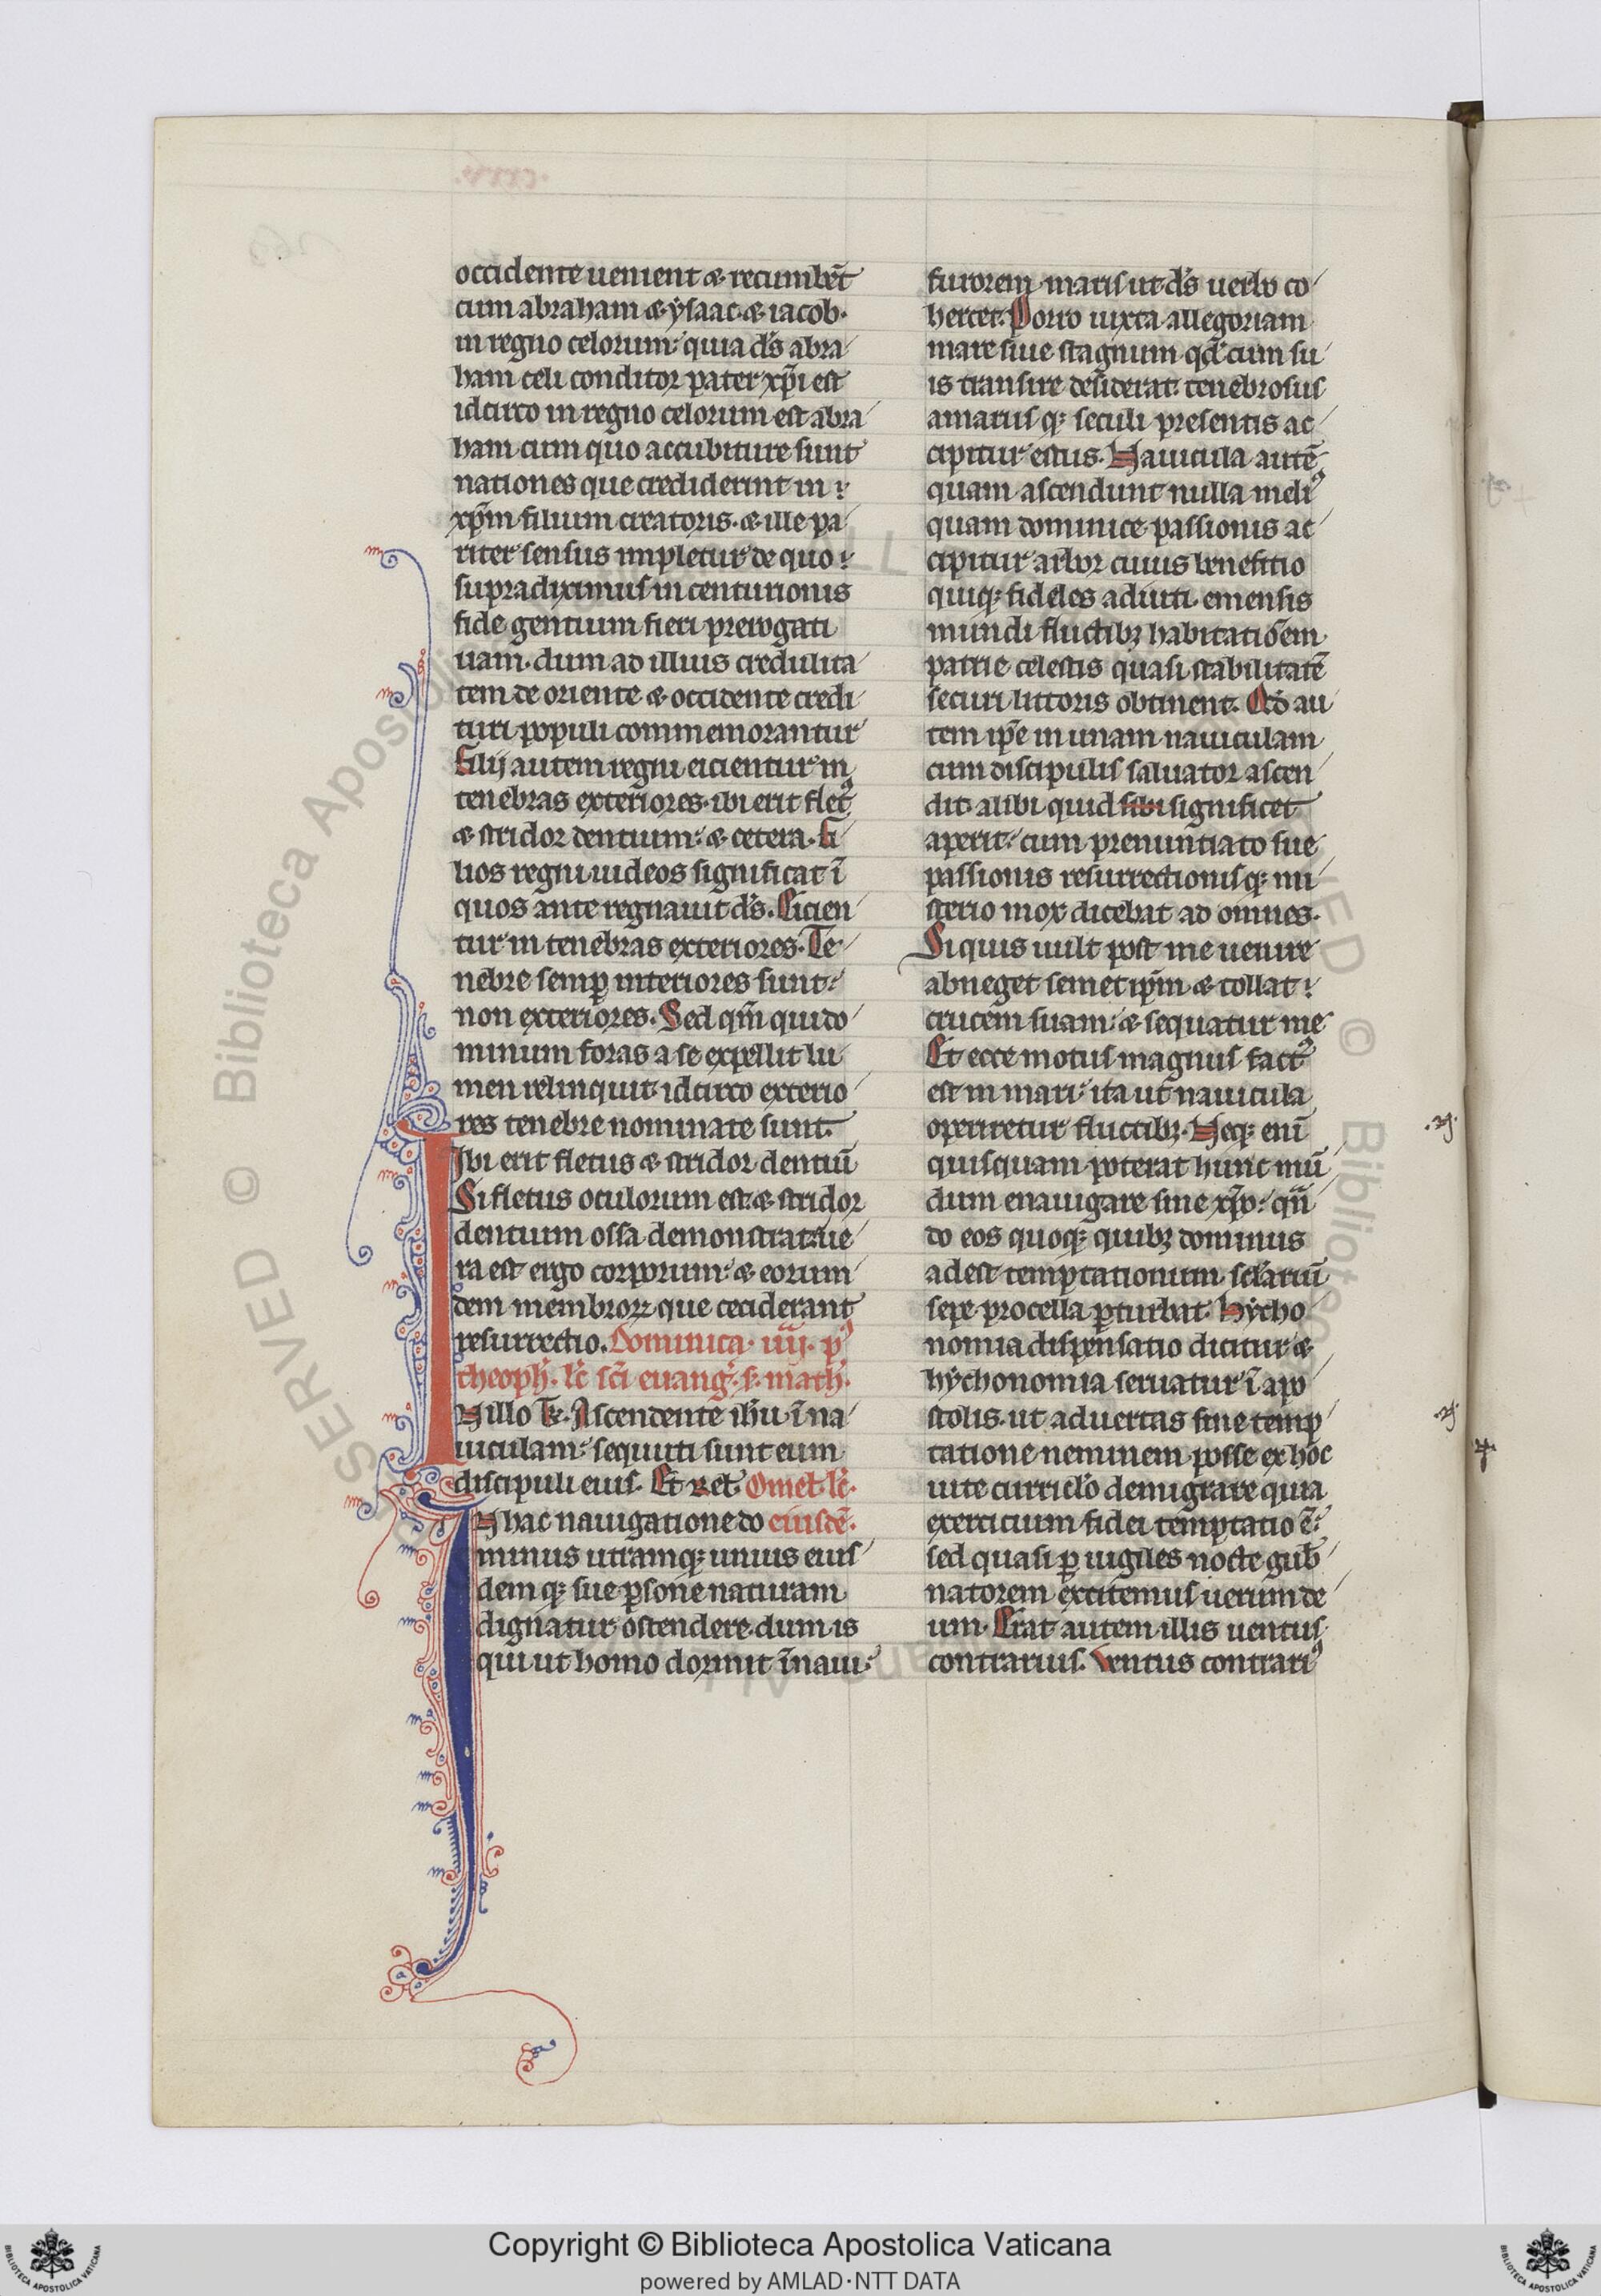 occidente uenient & recumbēt
cum abraham & ysaac & iacob.
in regno celorum: quia ds̄ abra
ham celi conditor pater xp̄i est
idcirco in regno celorum est abra
ham cum quo accubiture sunt
nationes que crediderint in
xp̄m filium creatoris. & ille pa
riter sensus impletur de quo
supradiximus in centurionis
fide gentium fieri prerogati
uam. dum ad illius credulita
tem de oriente & occidente credi
turi populi commemorantur
Filij autem regni eicientur in
tenebras exteriores. ibi erit flet᷒
& stridor dentium: & cetera. Fi
lios regni iudeos significat ī
quos ante regnauit ds̄. Eicien
tur in tenebras exteriores. Te
nebre semꝑ interiores sunt:
non exteriores. Sed qm̄ qui do
minum foras a se expellit lu
men relinquit. idcirco exterio
res tenebre nominate sunt.
Ibi erit fletus & stridor dentiū
Si fletus oculorum est. & stridor
dentium ossa demonstrat. ue
ra est ergo corporum: & eorum
dem membroꝝ que ceciderant
resurrectio. Dominica. iiij. p᷒
theoph̄. lc̄ sc̄i euanḡ. s. math̄.
N illo t̄. Ascendente ih̄u ī na
uiculam: sequuti sunt eum
discipuli eius. Et rel̄. Omel̄. lc̄.
N hac nauigatione do eiusdē.
minus utramqꝫ unius eius
demqꝫ sue ꝑsone naturam
dignatur ostendere. dum is
qui ut homo dormit ī naui:
furorem maris ut ds̄ uerbo co
hercet. Porro iuxta allegoriam
mare siue stagnum qd̄ cum su
is transire desiderat. tenebrosus
amarusqꝫ seculi presentis ac
cipitur estus. Nauicula autē
quam ascendunt nulla meli᷒
quam dominice passionis ac
cipitur arbor cuius benefitio
quiqꝫ fideles adiuti. emensis
mundi fluctibꝫ habitatiōem
patrie celestis quasi stabilitatē
securi littoris obtinent. Qd̄ au
tem ip̄e in unam nauiculam
cum discipulis saluator ascen
dit. alibi quid sibi significet
aperit: cum prenuntiato sue
passionis resurrectionisqꝫ mi
sterio mox dicebat ad omnes.
Si quis uult post me uenire
abneget semetip̄m & tollat
crucem suam: & sequatur me
Et ecce motus magnus fact᷒
est in mari: ita ut nauicula
operiretur fluctibꝫ. Neqꝫ enī
quisquam poterat hunc mū
dum enauigare sine xp̄o: qn̄
do eos quoqꝫ quibꝫ dominus
adest temptationum sclariū
sepe procella ꝑturbat. hycho
nomia dispensatio dicitur &
hychonomia seruatur ī apo
stolis. ut aduertas sine temp
tatione neminem posse ex hoc
uite curriclo demigrare quia
exercitium fidei temptatio ē:
sed quasi ꝑ uigiles nocte gub̄
natorem excitemus uerum de
um. Erat autem illis uentus
contrarius. Ventus contrari᷒
Copyright © Biblioteca Apostolica Vaticana
powered by AMLAD·NTT DATA